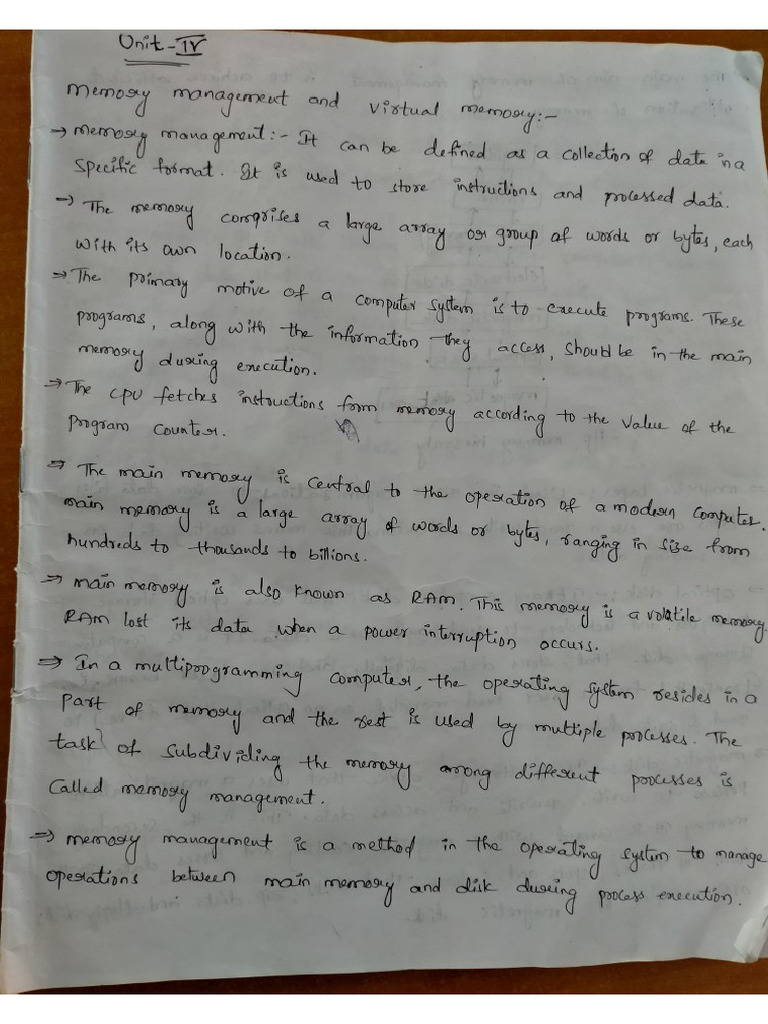 Unit-IV
Memory management and virtual memory:-
→ memory management:- It can be defined as a collection of data in a
specific format. It is used to store instructions and processed data.
→ The memory comprises a large array or group of words or bytes, each
with its own location.
→ The primary motive of a computer system is to execute programs. These
programs, along with the information they access, should be in the main
memory during execution.
→ The CPU fetches instructions from memory according to the value of the
program counter.
⇒ The main memory is central to the operation of a modern computer.
main memory is a large array of words or bytes, ranging in size from
hundreds to thousands to billions.
⇒ main memory is also known as RAM. This memory is a volatile memory.
RAM lost its data when a power interruption occurs.
⇒ In a multiprogramming computer, the operating system resides in a
part of memory and the rest is used by multiple processes. The
task of subdividing the memory among different processes is
called memory management.
⇒ memory management is a method in the operating system to manage
operations between main memory and disk during process execution.